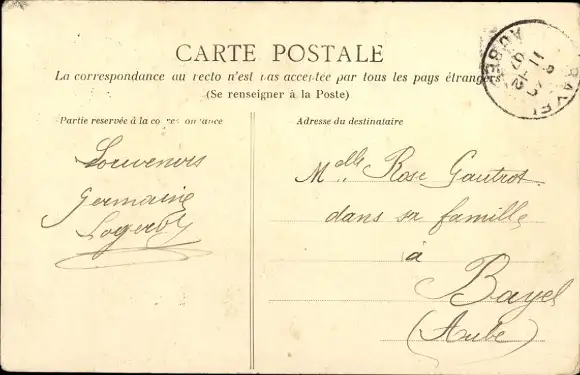 CARTE POSTALE
La correspondance au recto n'est pas acceptée par tous les pays étrangers
(Se renseigner à la Poste)
Partie reservée à la correspondance
Souvenirs
Germaine
Adresse du destinataire
Melle Rose Gautrot
dans sa famille
à
Bayel
(Aube)
BAYEL
AUBE